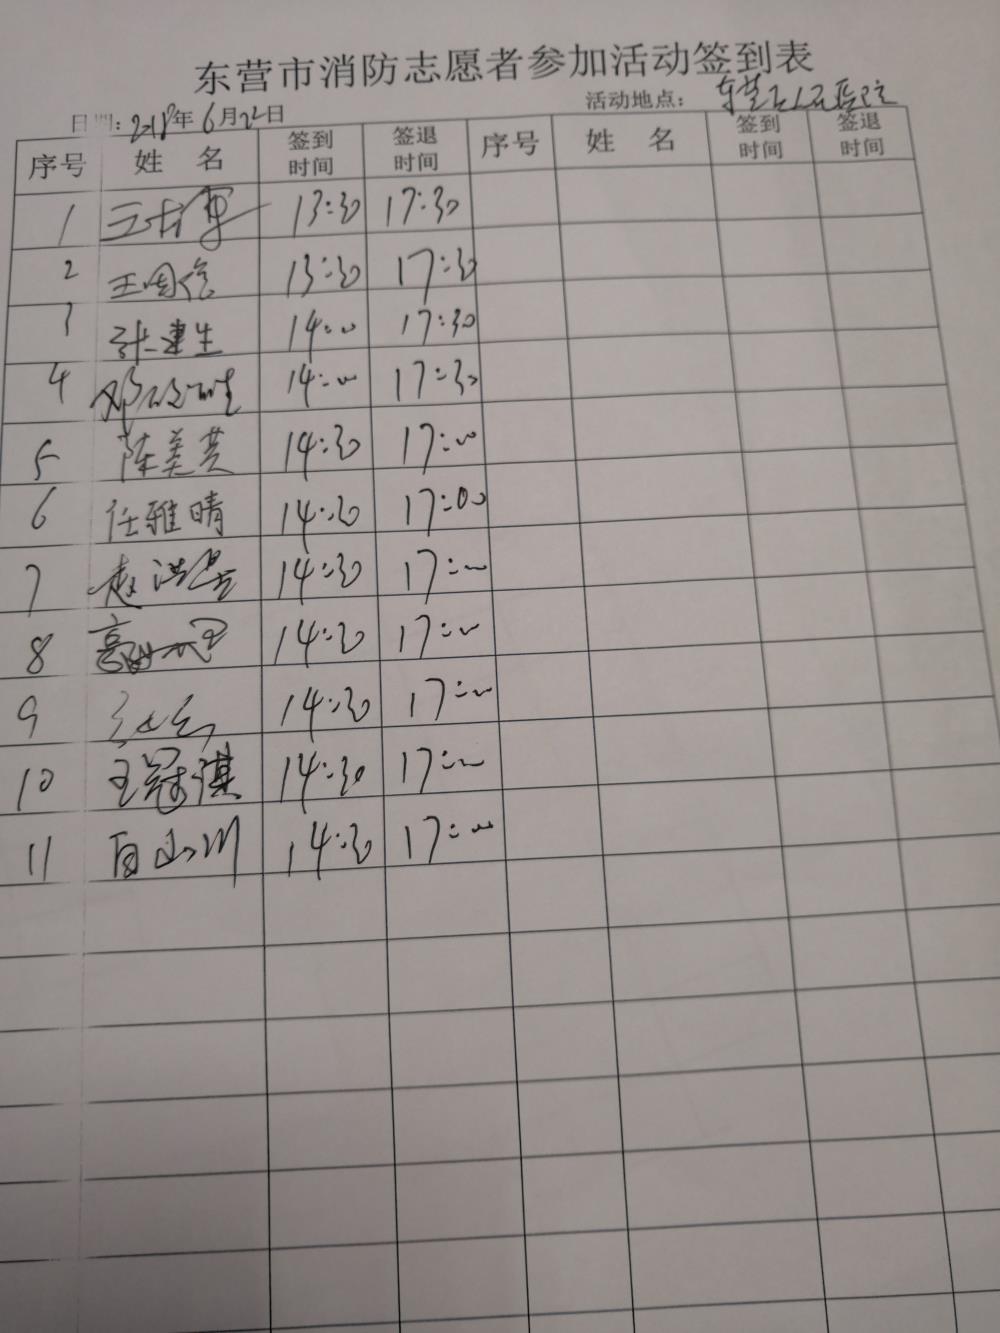 东营市消防志愿者参加活动签到表
日期：2018年6月22日 活动地点：东营市人民医院
序号 姓 名 签到时间 签退时间 序号 姓 名 签到时间 签退时间
1 13:30 17:30
2 王周信 13:30 17:30
3 张建生 14:00 17:30
4 邓 14:00 17:30
5 陈美芸 14:30 17:00
6 任雅晴 14:30 17:00
7 赵洪昌 14:30 17:00
8 14:30 17:00
9 14:30 17:00
10 王冠祺 14:30 17:00
11 白山川 14:30 17:00